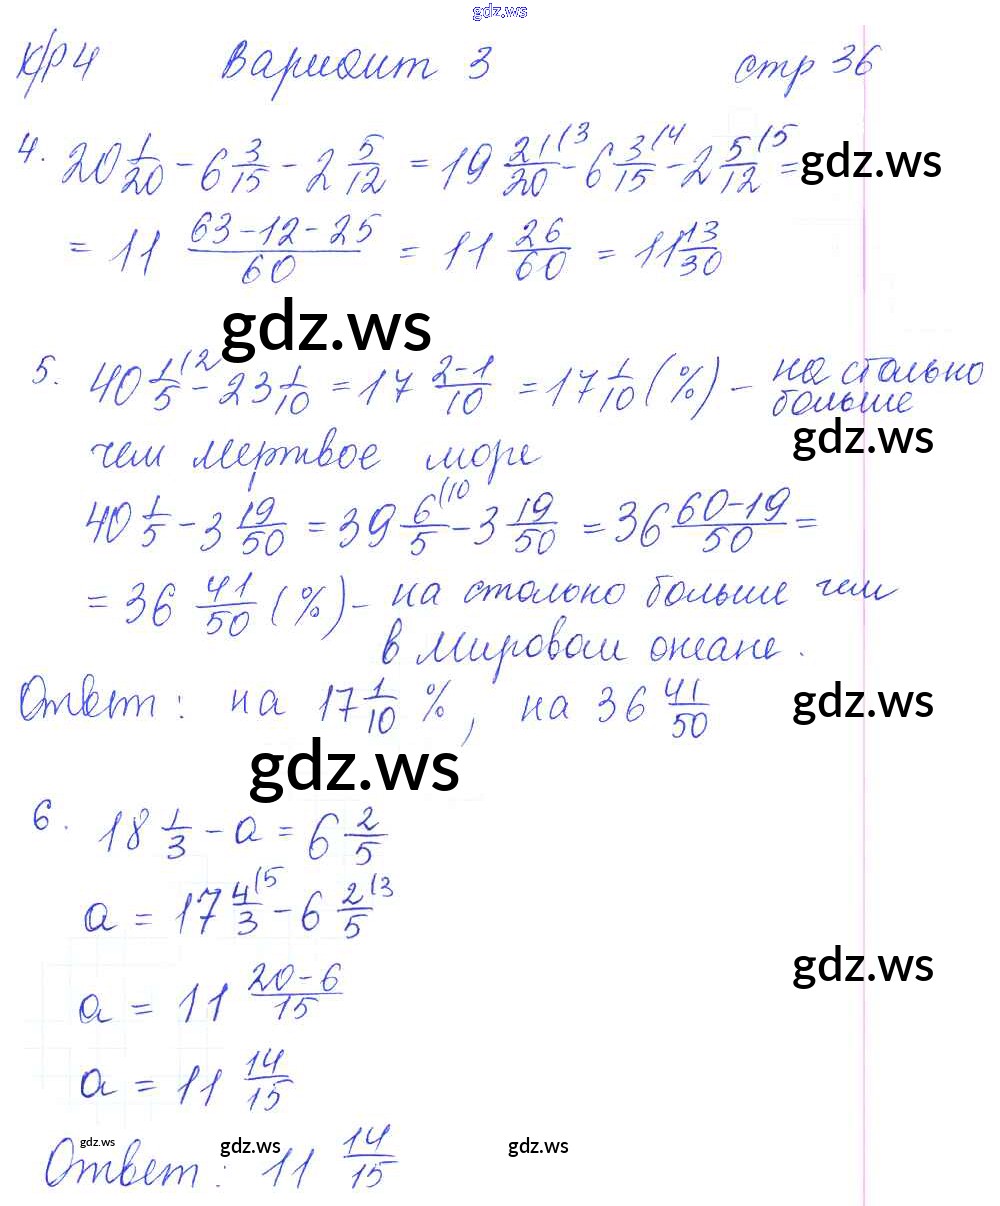 gdz.ws
К/Р 4 Вариант 3 стр 36
4. 20 1/20 - 6 3/15 - 2 5/12 = 19 21/20 (3 - 6 3/15 (4 - 2 5/12 (5 =
gdz.ws
= 11 (63-12-25)/60 = 11 26/60 = 11 13/30
gdz.ws
5. 40 1/5 (2 - 23 1/10 = 17 (2-1)/10 = 17 1/10 (%) - на столько
больше
gdz.ws
чем мертвое море
40 1/5 - 3 19/50 = 39 6/5 (10 - 3 19/50 = 36 (60-19)/50 =
= 36 41/50 (%) - на столько больше чем
в мировом океане.
Ответ: на 17 1/10 %, на 36 41/50
gdz.ws
gdz.ws
6. 18 1/3 - a = 6 2/5
a = 17 4/3 (5 - 6 2/5 (3
gdz.ws
a = 11 (20-6)/15
a = 11 14/15
gdz.ws gdz.ws gdz.ws
Ответ: 11 14/15